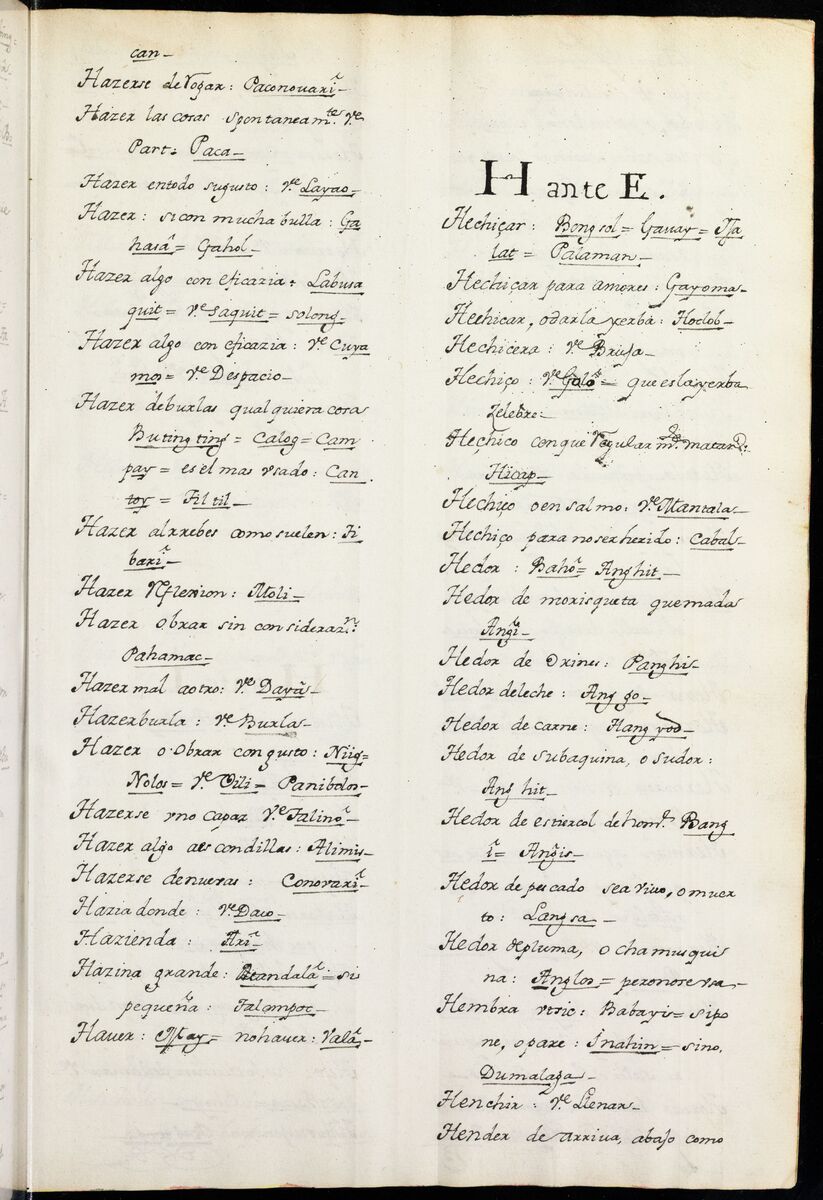 can_
Hazerse de Rogar: Paconouari_
Hazer las cosas spontaneam.te Ve
Part: Paca_
Hazer entodo sugusto: Ve Layao_
Hazer: si con mucha bulla: Ga
hasâ= Gahol_
Hazer algo con eficazia: Labusa
quit= Ve Saquit= solong_
Hazer algo con eficazia: Ve Cuya
mos= Ve Despacio_
Hazer deburlas qualquiera cosa
Butingting= Calog= Cam
pay= es el mas usado: Can
toy= Filtil_
Hazer alrrebes como suelen: Ti
bari_
Hazer Ynflexion: Moli_
Hazer Obrar sin consideraz.n:
Pahamac_
Hazer mal aotro: Ve Dayâ_
Hazerburla: Ve Burlas_
Hazer o Obrar con gusto: Niig=
Nolos= Ve Vili= Panibolos_
Hazerse yno capaz Ve Talino_
Hazer algo aescondillas: Alimis_
Hazerse denueras: Conovari_
Hazia donde: Ve Daco_
Hazienda: Ari_
Hazina grande: Mandalâ= si
pequeña: Talompoc_
Hauer: May= nohauer: Valâ_
H ante E.
Hechiçar: Bongsol= Gauay= Tja
lat= Palaman_
Hechiçar para amores: Gayoma_
Hechicar, odarla yerba: Hoclob_
Hechicera: Ve Bruja_
Hechiço: Ve Galos= que es la yerba
Zelebre:_
Hechico conque Regular m.te matan:
Hicap_
Hechiço o en salmo: Ve Mantala_
Hechiço para noser herido: Cabal_
Hedor: Baho= Anghit_
Hedor de morisqueta quemada
Angi_
Hedor de Orines: Panghis_
Hedor deleche: Ang go_
Hedor de carne: Hang yod_
Hedor de subaquina, o sudor:
Ang hit_
Hedor de estiercol de hom.e Bang
i= Angis_
Hedor de pescado sea viuo, o muer
to: Langsa_
Hedor depluma, o chamusqui
na: Anglos= peronose usa_
Hembra utsic: Babayis= sipo
ne, o pare: Inahin= sino,
Dumalaga_
Henchir: Ve Llenar_
Hender de arriua, abajo como